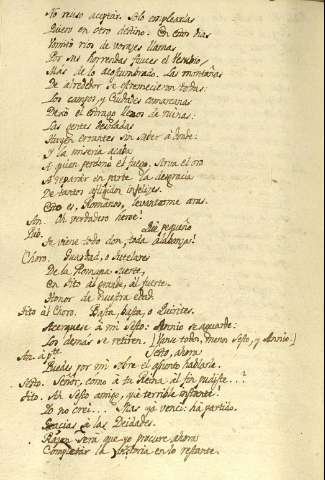 No reuso aceptar. Solo emplearlas
Quiero en otro destino: En estos dias
Vomitó rios de voraces llamas
Por sus horrendas fauces el Vesubio,
Mas de lo acostumbrado. Las montañas
De alrededor se estremecieron todas:
Los campos y Ciudades comarcanas
Dexó el estrago llenos de ruinas:
Las gentes desoladas
Huyen errantes sin saber á donde:
Y la miseria acaba
A quien perdonó el fuego. Sirva el oro
A reparar en parte la desgracia
De tantos afligidos infelices.
Esto es, Romanos, levantarme aras.
An. Oh verdadero heroe!
Pub. Qué pequeño
Le viene todo don, toda alabanza!
Choro. Guardad, o tutelares
De la Romana suerte,
En Tito al grande, al fuerte.
Honor de nuestra edad.
Tito al Choro. Basta, basta, o Quirites.
Acerquese á mi Sesto: Annio se aguarde:
Los demás se retiren. [Vanse todos, menos Sesto, y Annio.]
An. á pte. Sesto, ahora
Puedes por mi obre el asunto hablarla.
Sesto. Señor, como á tu Reina al fin pudiste...?
Tito. Ah Sesto amigo, que terrible instante!
Yo no crei... Mas ya vencí: ha partido.
Gracias á las Deidades.
Razon será que yo procure ahora
Completar la victoria en lo restante.